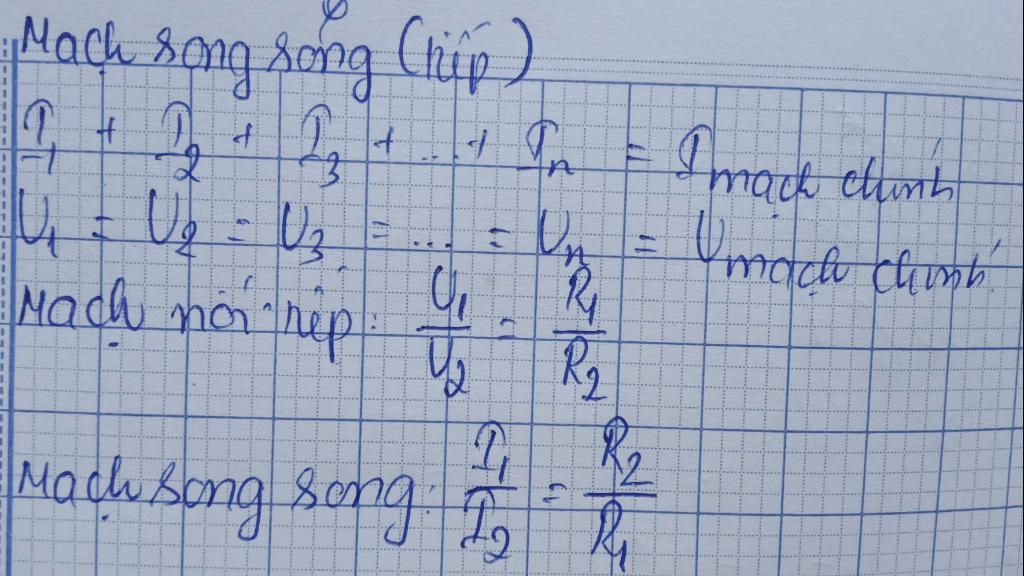 Mạch song song (tiếp)
I₁ + I₂ + I₃ + ... + Iₙ = I mạch chính
U₁ = U₂ = U₃ = ... = Uₙ = U mạch chính
Mạch nối tiếp: U₁/U₂ = R₁/R₂
Mạch song song: I₁/I₂ = R₂/R₁